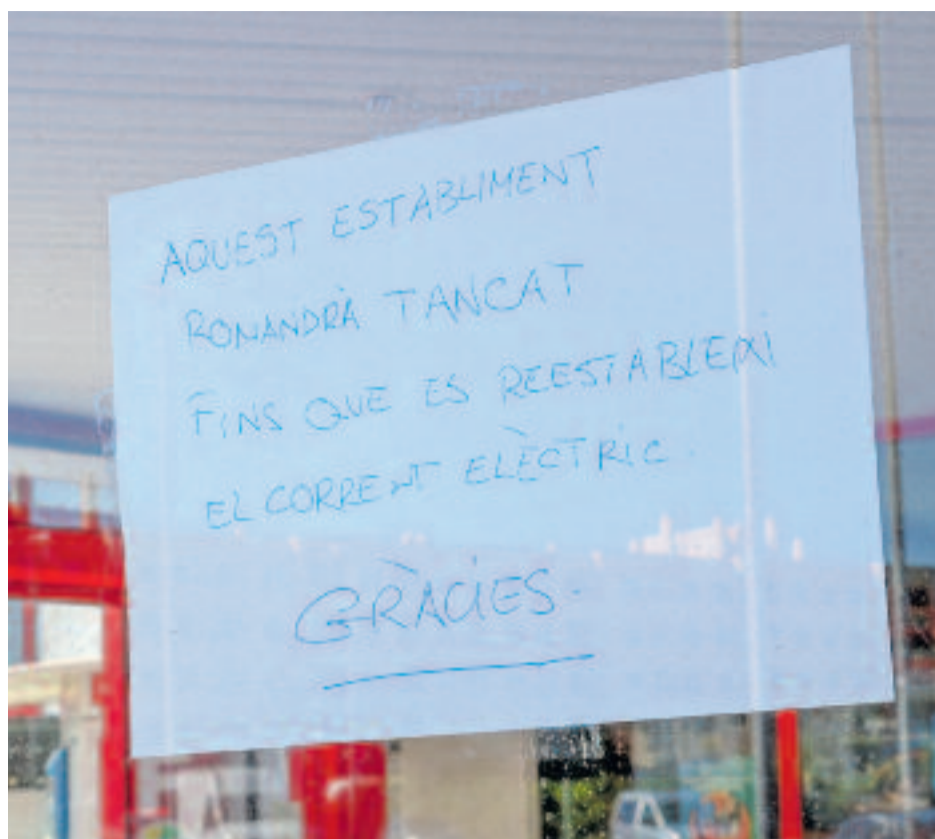 AQUEST ESTABLIMENT
ROMANDRÀ TANCAT
FINS QUE ES REESTABLEIXI
EL CORRENT ELÈCTRIC.
GRÀCIES.